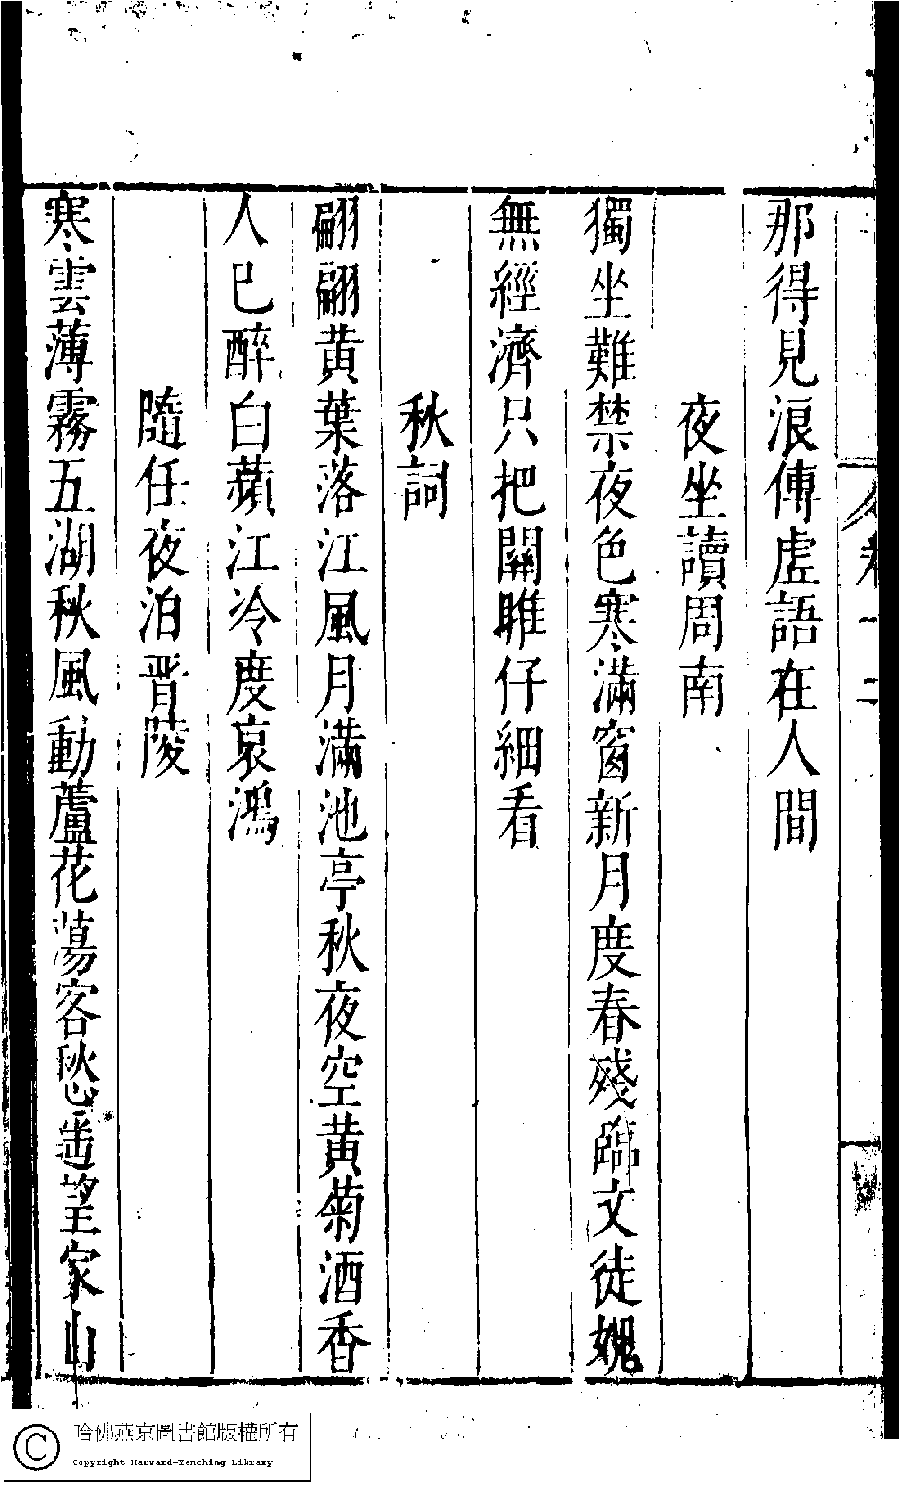 卷十二
那得見浪傳虛語在人間
夜坐讀周南
獨坐難禁夜色寒滿窗新月度春殘臨文徒媿
無經濟只把關雎仔細看
秋詞
翩翩黃葉落江風月滿池亭秋夜空黃菊酒香
人已醉白蘋江冷度哀鴻
隨任夜泊晋陵
寒雲薄霧五湖秋風動蘆花蕩客愁遥望家山
哈佛燕京圖書館版權所有
Copyright Harvard-Yenching Library